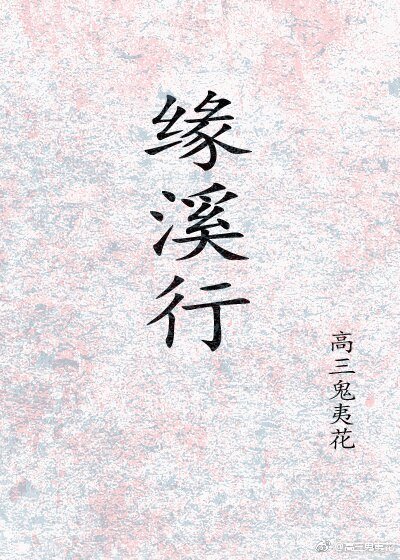 缘溪行
高三鬼夷花